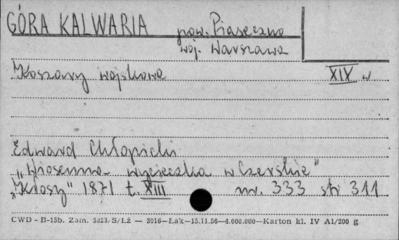 GÓRA KALWARIA pow. Piaseczno
woj. Warszawa
Koszary wojskowe XIX w
Edward Chłopicki
„Wiosenna wycieczka w Czerskie"
„Kłosy" 1871 t. XIII nr. 333 str 311
CWD - B-15b. Zam. S/Lż — 2016—Łak—15.11.56—4.000.000—Karton kl. IV A1/200 g